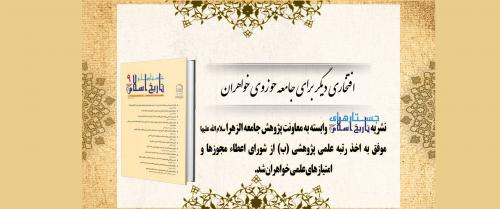 افتخاری دیگر برای جامعه حوزوی خواهران
جستارهای
تاریخ اسلام
۹
نشریه جستارهای تاریخ اسلام وابسته به معاونت پژوهش جامعه الزهرا سلام‌الله علیها
موفق به اخذ رتبه علمی پژوهشی (ب) از شورای اعطاء مجوزها و
امتیازهای علمی خواهران شد.